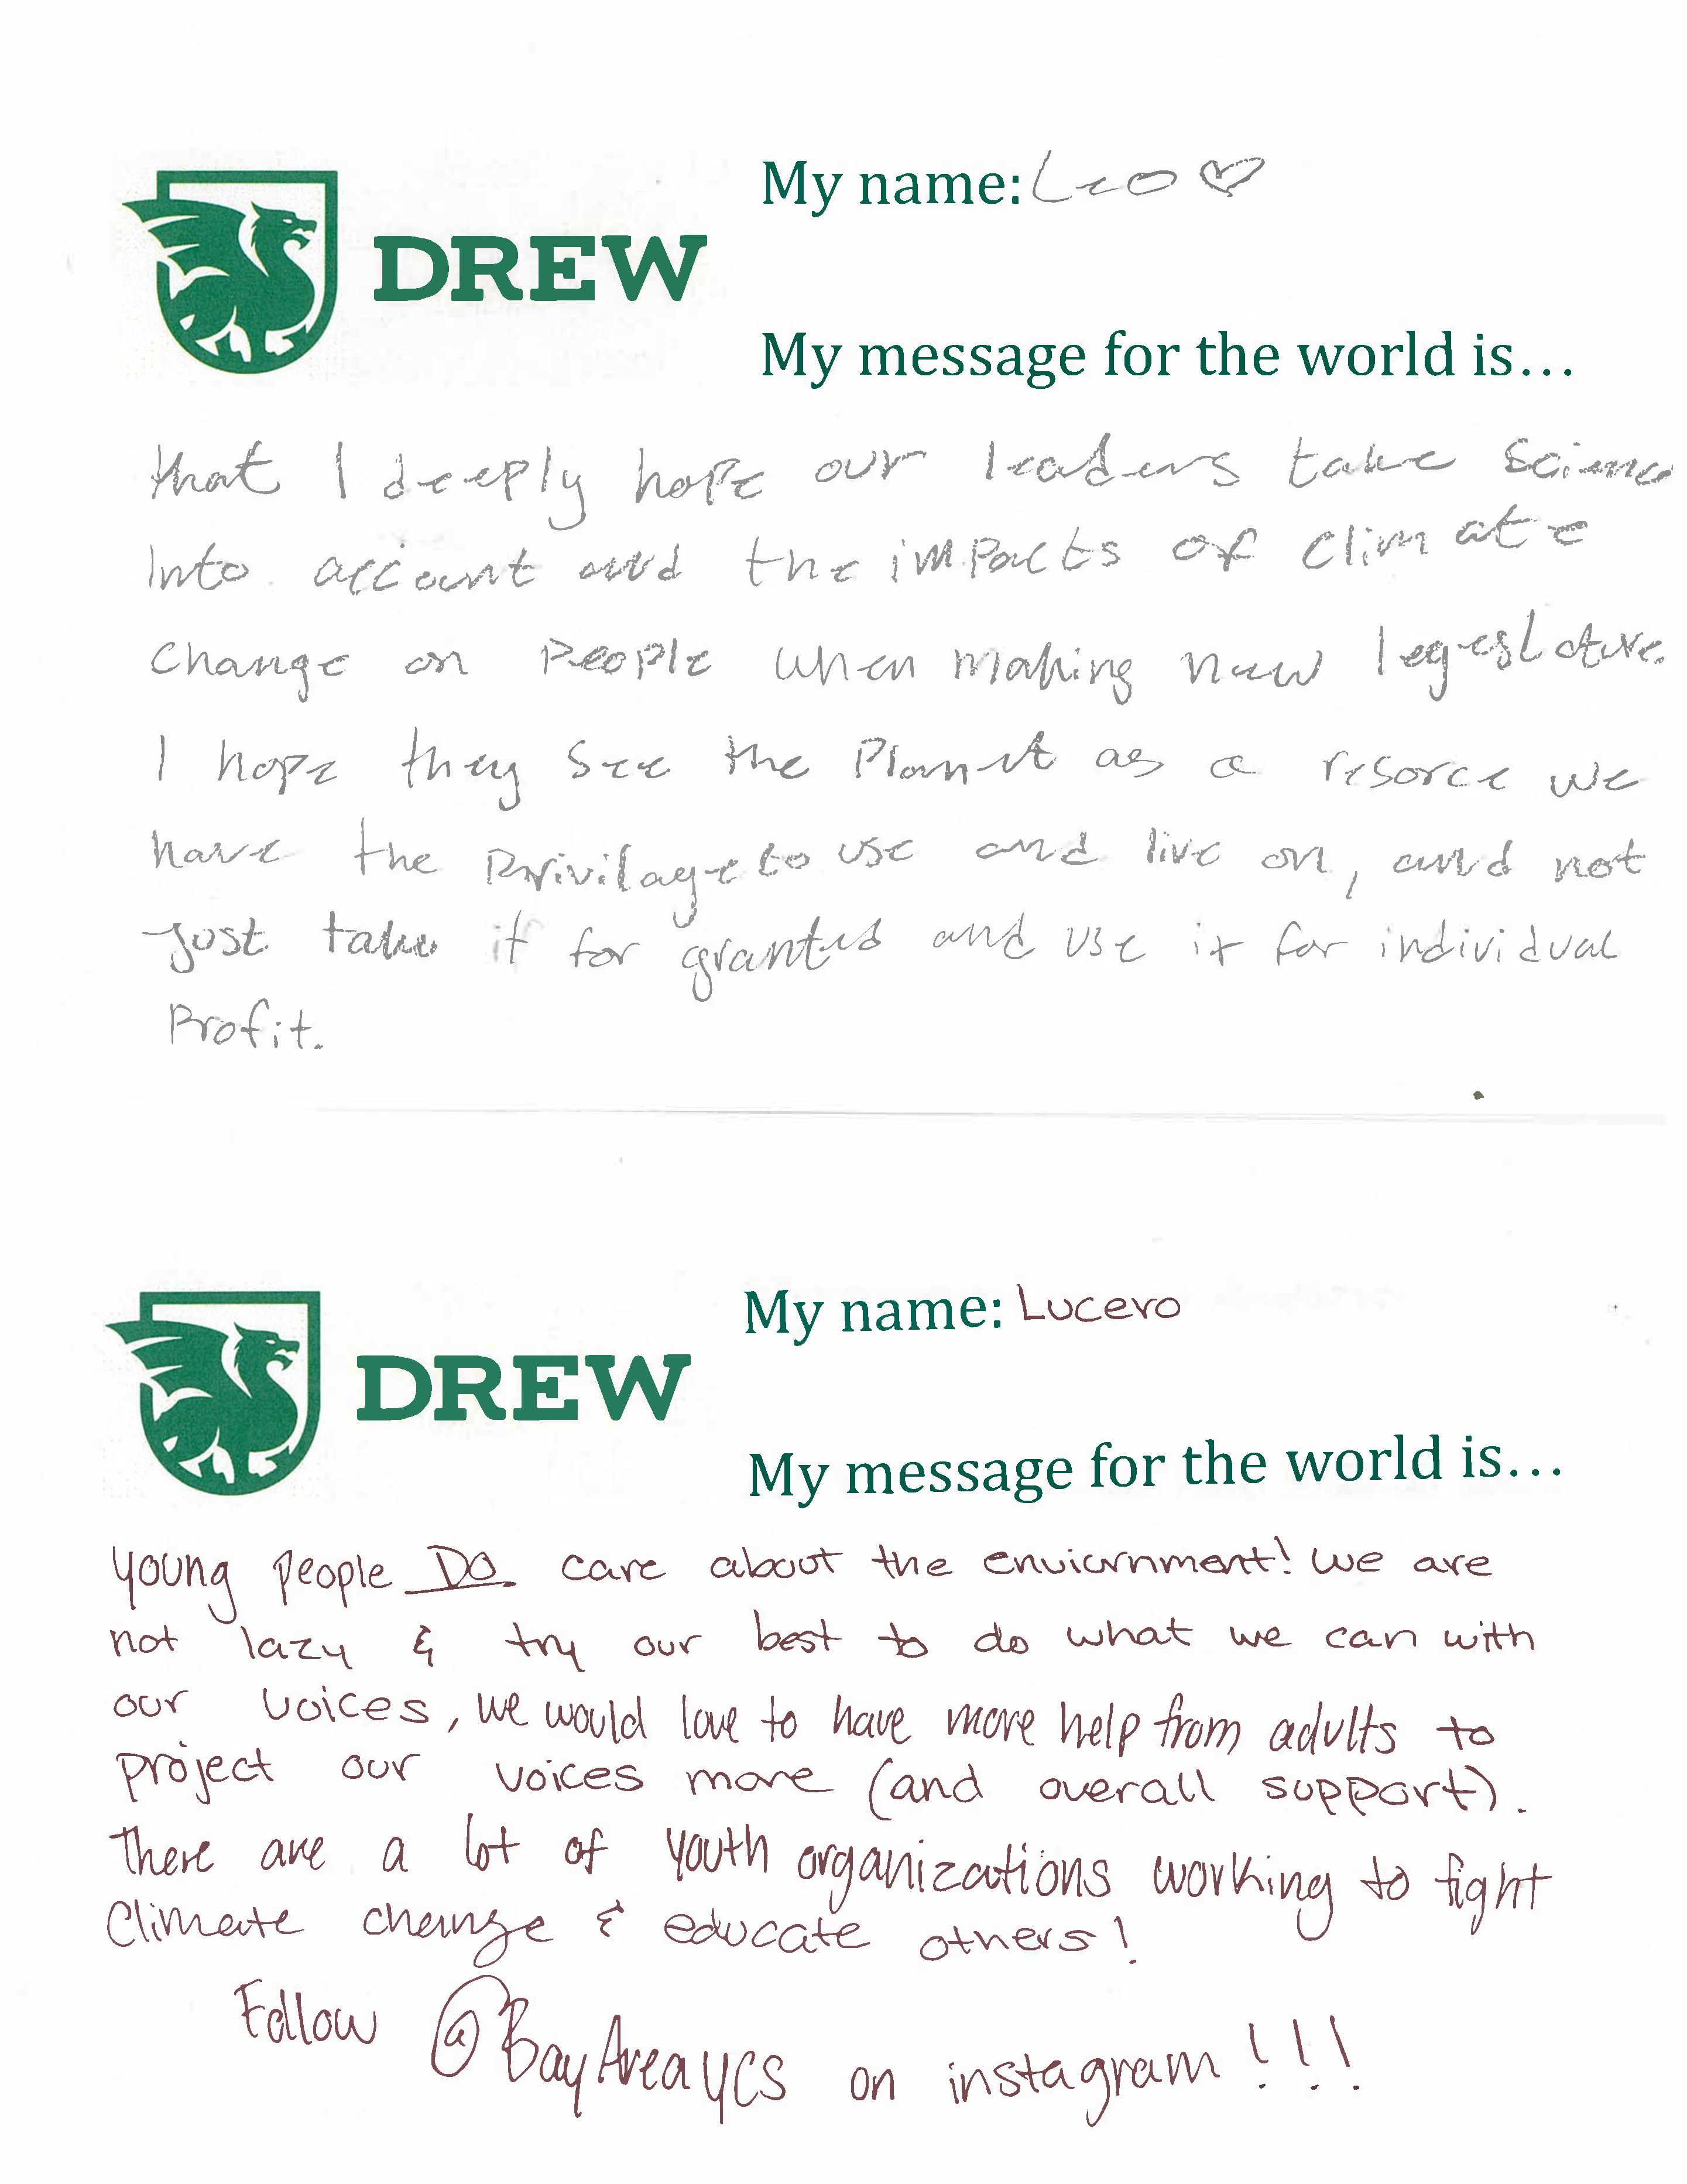 My name: Leo ♡
DREW
My message for the world is...
that I deeply hope our leaders take science
into account and the impacts of climate
change on people when making new legeslature.
I hope they see the Planet as a resorce we
have the Privilage to use and live on, and not
just take it for granted and use it for individual
Profit.
My name: Lucero
DREW
My message for the world is...
young people DO care about the enviornment! we are
not lazy & try our best to do what we can with
our voices, we would love to have more help from adults to
project our voices more (and overall support).
There are a lot of youth organizations working to fight
Climate change & educate others!
Follow @BayAreaYCS on instagram!!!